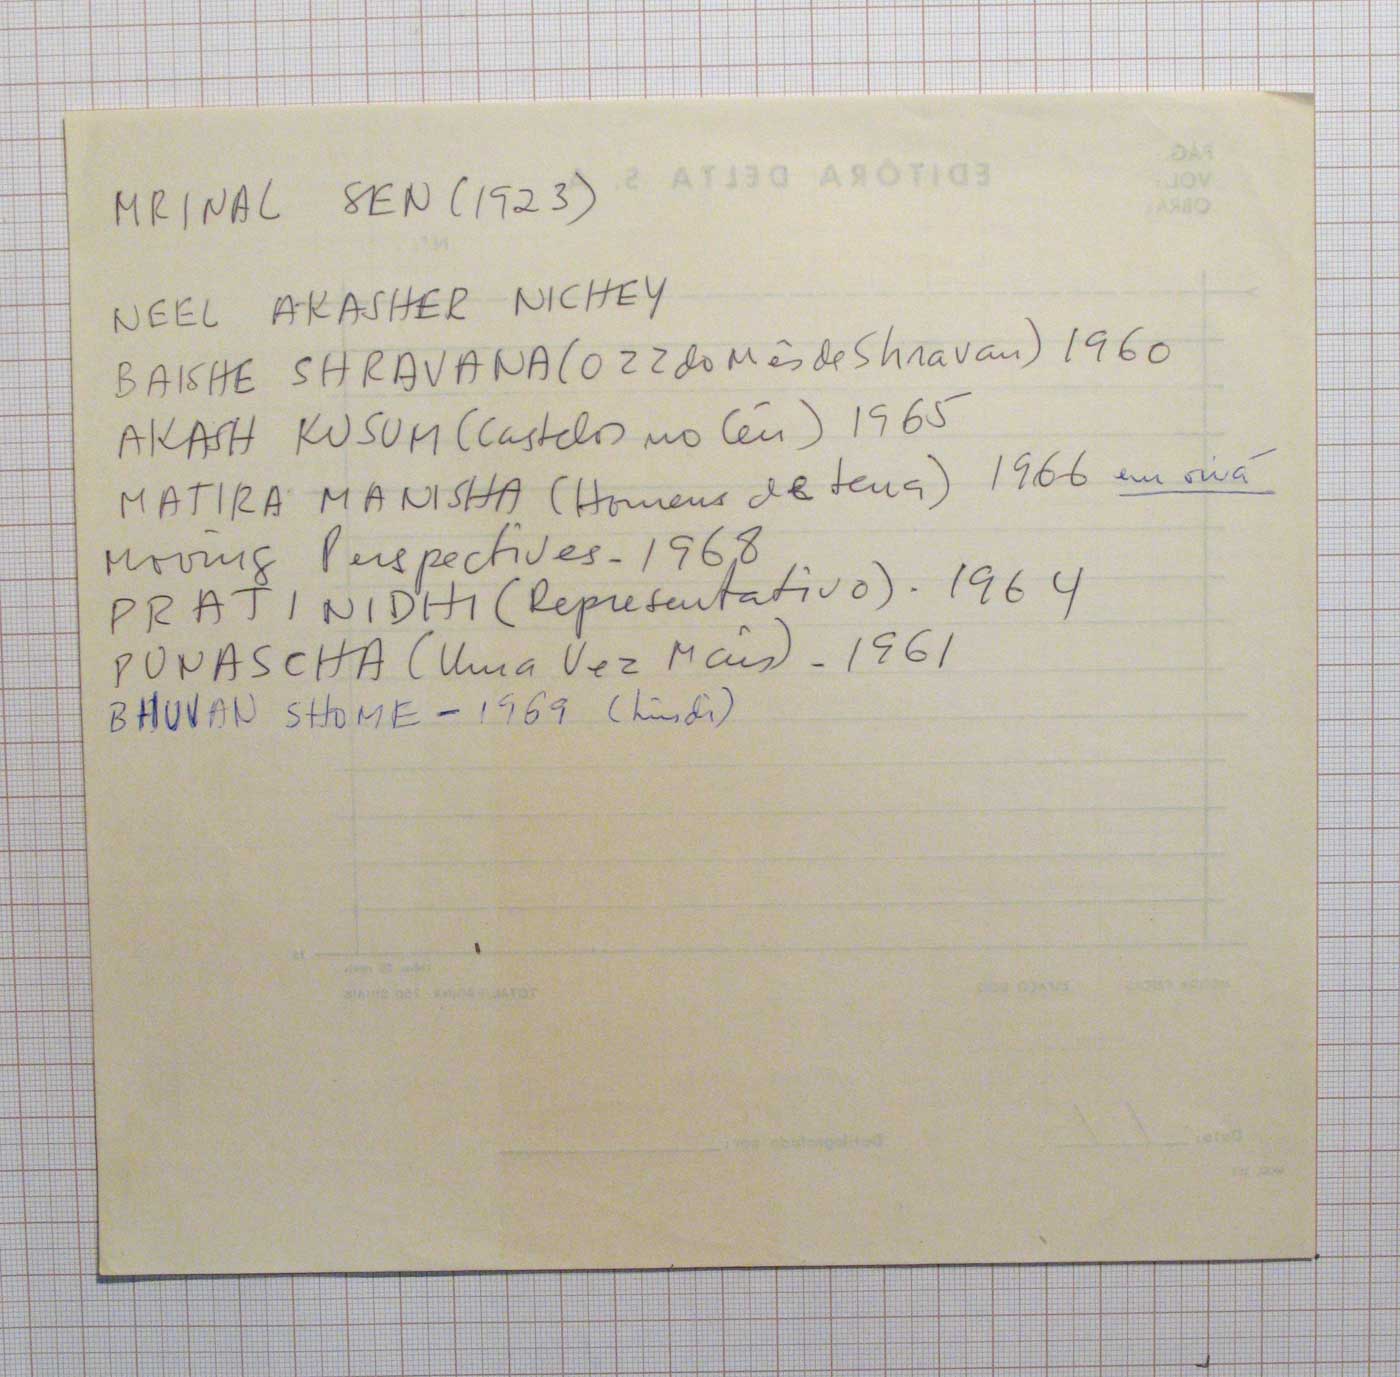 MRINAL SEN (1923)
NEEL AKASHER NICHEY
BAISHE SHRAVANA (O 22 do Mês de Shravan) 1960
AKASH KUSUM (Castelos no Céu) 1965
MATIRA MANISHA (Homens de terra) 1966 em oriá
Moving Perspectives - 1968
PRATINIDHI (Representativo). 1964
PUNASCHA (Uma Vez Mais) - 1961
BHUVAN SHOME - 1969 (hindi)
EDITÔRA DELTA S.
PÁG.
VOL.:
OBRA:
Datilografado por:
Data: